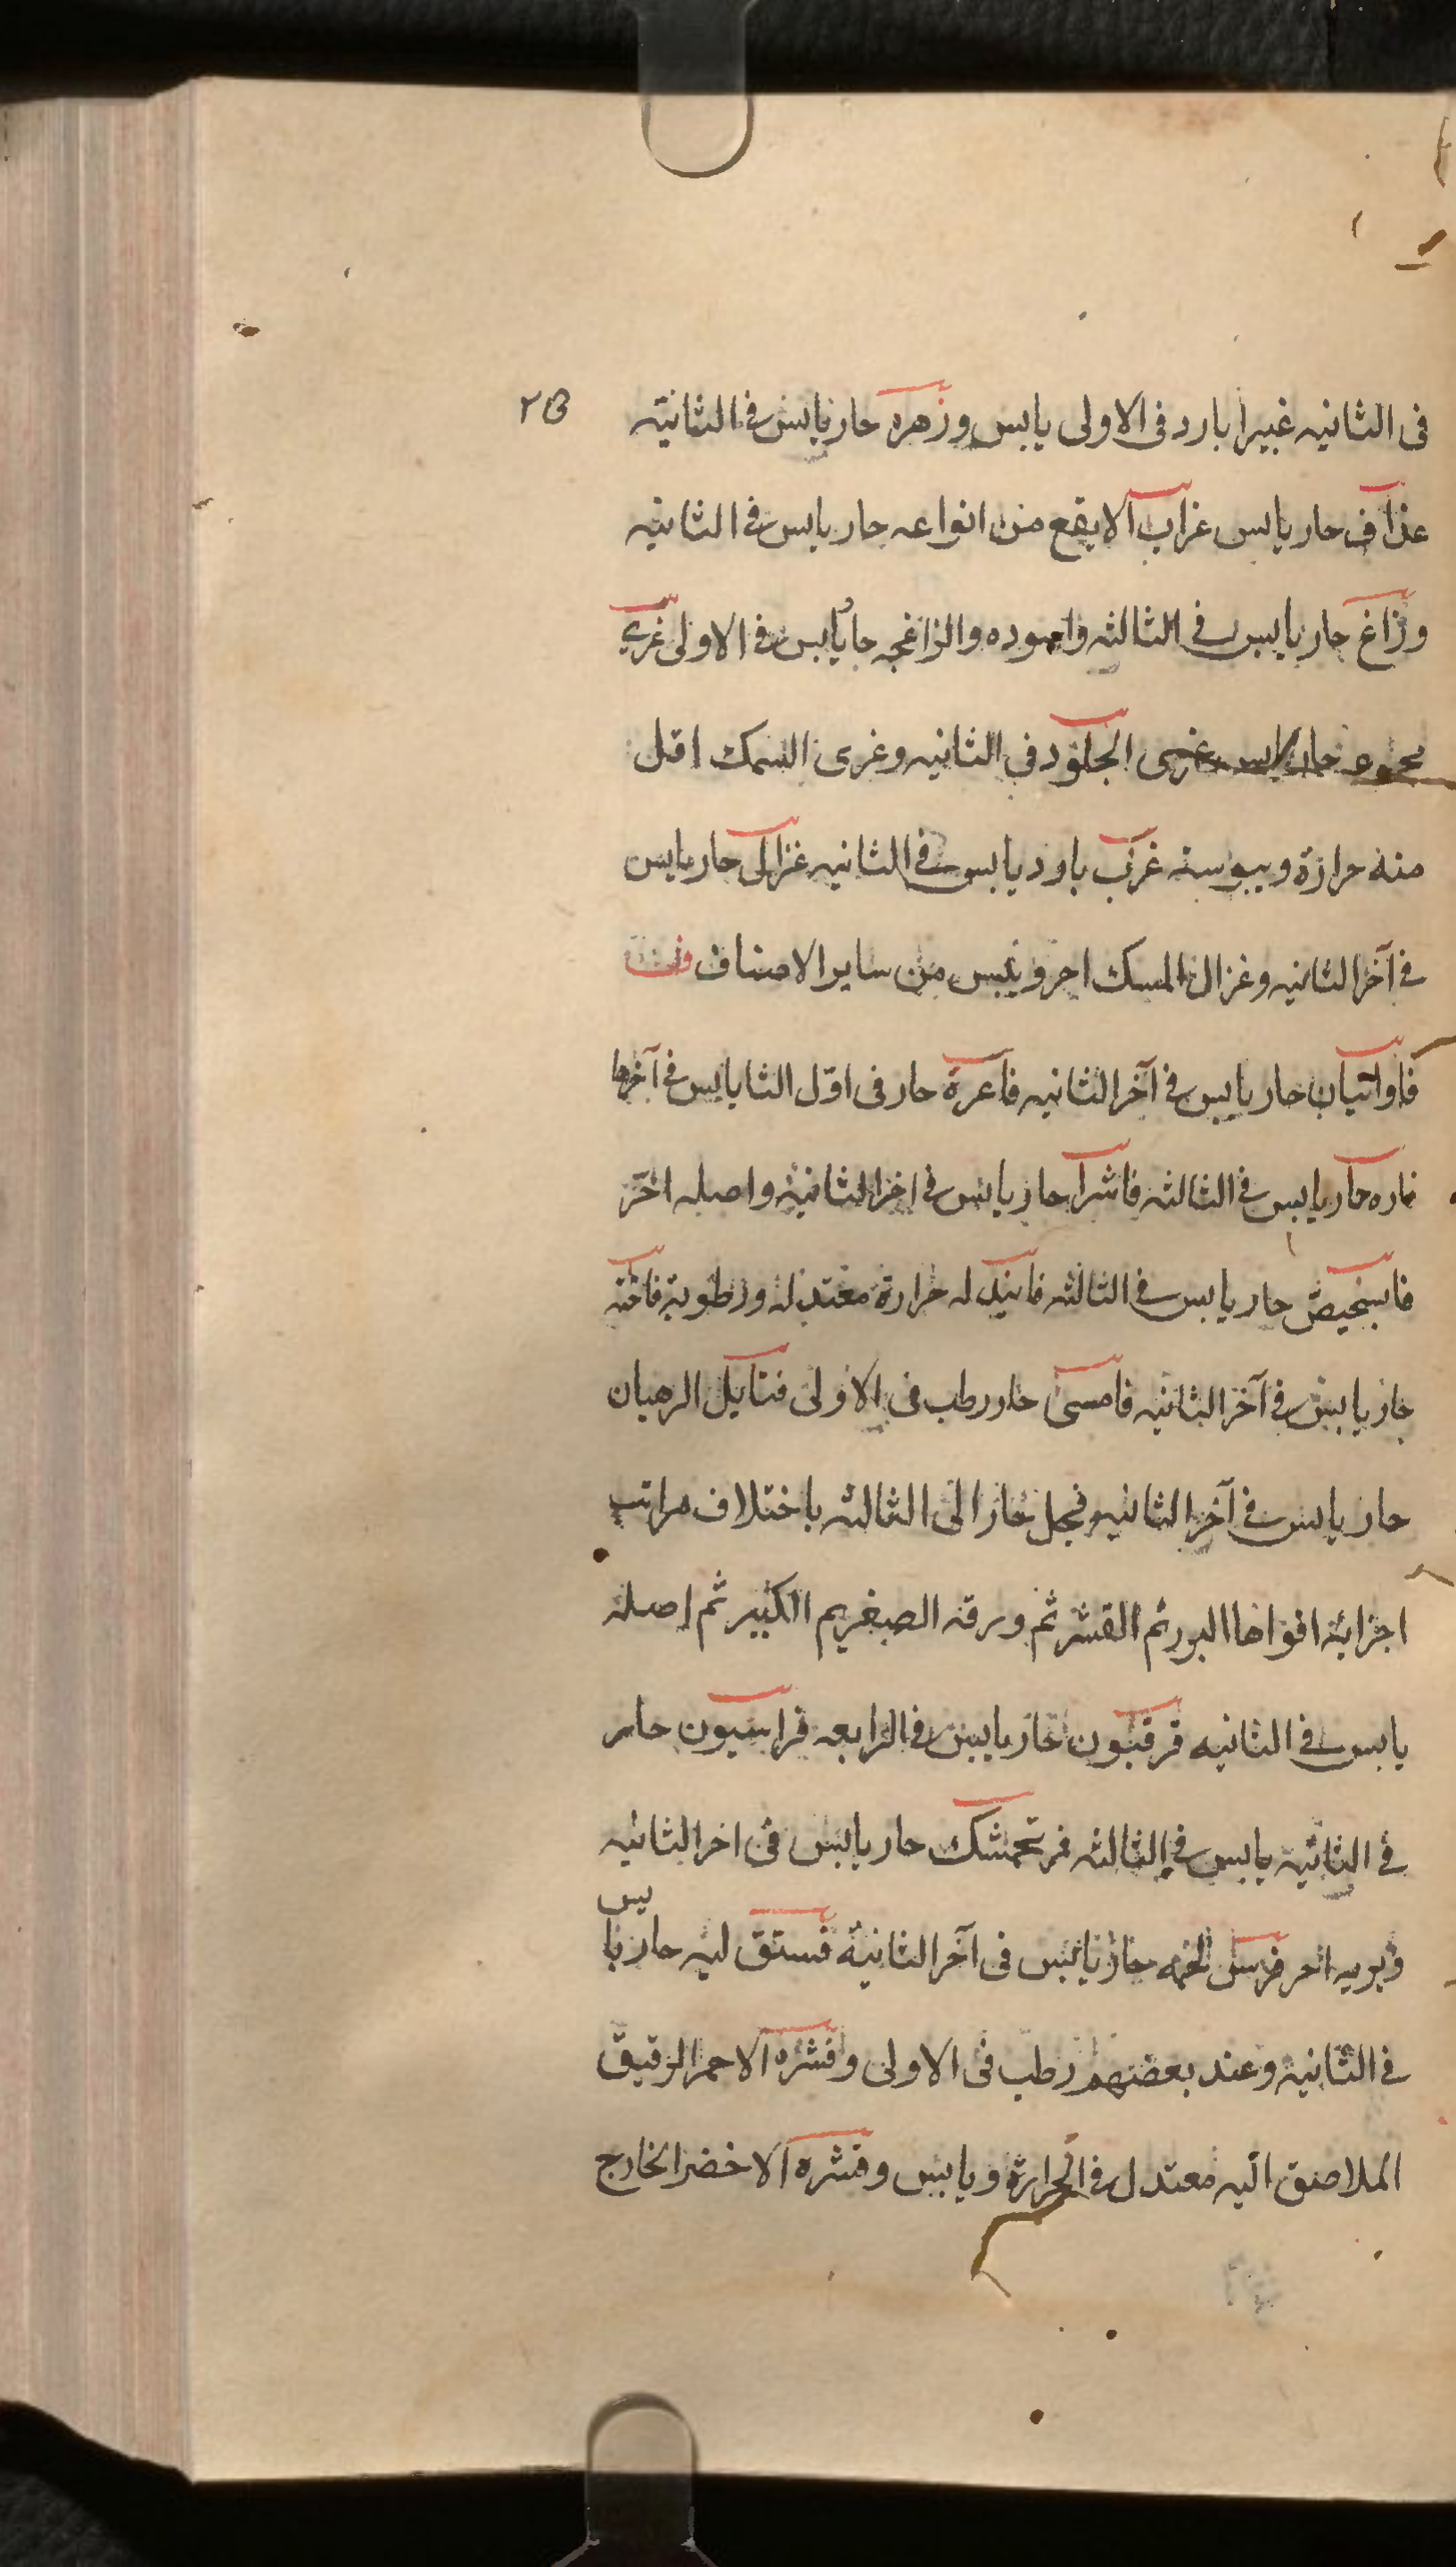 فى الثانيه غبيرا بارد فى الاولى يابس وزهره حار يابس فى الثانية
٢٥
عذاف حار يابس غراب الابقع من انواعه حار يابس فى الثانيه
وزاغ حار يابس فى الثالثه واسوده والزاغجه حار يابس فى الاولى غرى
الجلود فى الثانيه وغرى السمك اقل
منه حرارة ويبوسته غرب بارد يابس فى الثانيه غزال حار يابس
فى آخر الثانيه وغزال المسك احر وايبس من ساير الاصناف
فاوانيان حار يابس فى آخر الثانيه فاعرة حار فى اوّل الثا يابس فى آخرها
فاره حار يابس فى الثالثه فاشرا حار يابس فى اخر الثانية واصله احر
حار يابس فى الثالثه فانيد له حرارة معتدله ورطوبة فاخته
حار يابس فى آخر الثانيه فامسى حار رطب فى الاولى فتايل الرهبان
حار يابس فى آخر الثانيه وفجل حار الى الثالثه باختلاف مراتب
اجزائه اقواها البور ثم القشر ثم ورقه الصغير ثم الكبير ثم اصله
يابس فى الثانيه قرقبون حار يابس فى الرابعه فراسيون حار
فى الثانيه يابس فى الثالثه فرنجمشك حار يابس فى اخر الثانيه
وبريه احر فرس لحمه حار يابس فى آخر الثانية فستق لبه حار يابس
فى الثانية وعند بعضهم رطب فى الاولى وقشره الاحمر الرقيق
الملاصق اليه معتدل فى الحرارة ويابس وقشره الاخضر الخارج